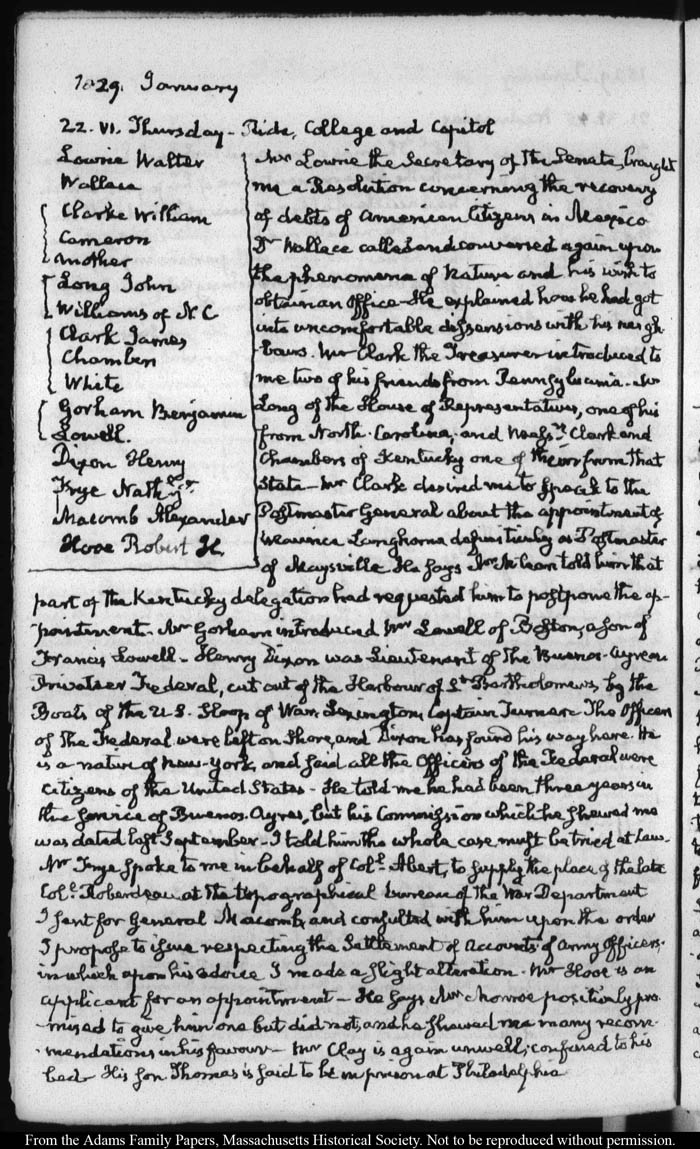 1829. January
22. VI. Thursday - Ride, College and Capitol
Lowrie Walter
Wallace
Clarke William
Cameron
another
Long John
Williams of N C
Clark James
Chambers
White
Gorham Benjamin
Lowell.
Dixon Henry
Frye Nathl. jr.
Macomb Alexander
Hooe Robert H.
Mr Lowrie the Secretary of the Senate, brought
me a Resolution concerning the recovery
of debts of American Citizens in Mexico
Dr Wallace called and conversed again upon
the phenomena of Nature and his wish to
obtain an Office - He explained how he had got
into uncomfortable dissensions with his neigh-
bours. Mr Clark the Treasurer introduced to
me two of his friends from Pennsylvania. Mr
Long of the House of Representatives, one of his
from North-Carolina, and Messrs. Clark and
Chambers of Kentucky one of theirs from that
State - Mr Clark desired me to speak to the
Postmaster General about the appointment of
Langhorne definitively as Postmaster
of Maysville He says Mr McLean told him that
part of the Kentucky delegation had requested him to postpone the ap-
pointment. Mr Gorham introduced Mr Lowell of Boston, a son of
Francis Lowell - Henry Dixon was Lieutenant of the Buenos-Ayrean
Privateer Federal, cut out of the Harbour of St. Bartholomews, by the
Boats of the U.S. Sloop of War, Lexington, Captain Turner. The Officers
of the Federal were left on Shore, and Dixon has found his way here. He
is a native of New-York, and said all the Officers of the Federal were
Citizens of the United States - He told me he had been three years in
the service of Buenos-Ayres, but his Commission which he shewed me
was dated last September - I told him the whole case must be tried at Law.
Mr Frye spoke to me in behalf of Coll. Abert, to supply the place of the late
Coll. Roberdeau at the topographical bureau of the War Department
I sent for General Macomb, and consulted with him upon the order
I propose to issue respecting the Settlement of Accounts of Army Officers.
in which upon his advice I made a slight alteration. Mr Hooe is an
applicant for an appointment - He says Mr Monroe positively pro-
mised to give him one but did not, and he shewed me many recom-
mendations in his favour - Mr Clay is again unwell; confined to his
bed - His son Thomas is said to be in prison at Philadelphia
From the Adams Family Papers, Massachusetts Historical Society. Not to be reproduced without permission.